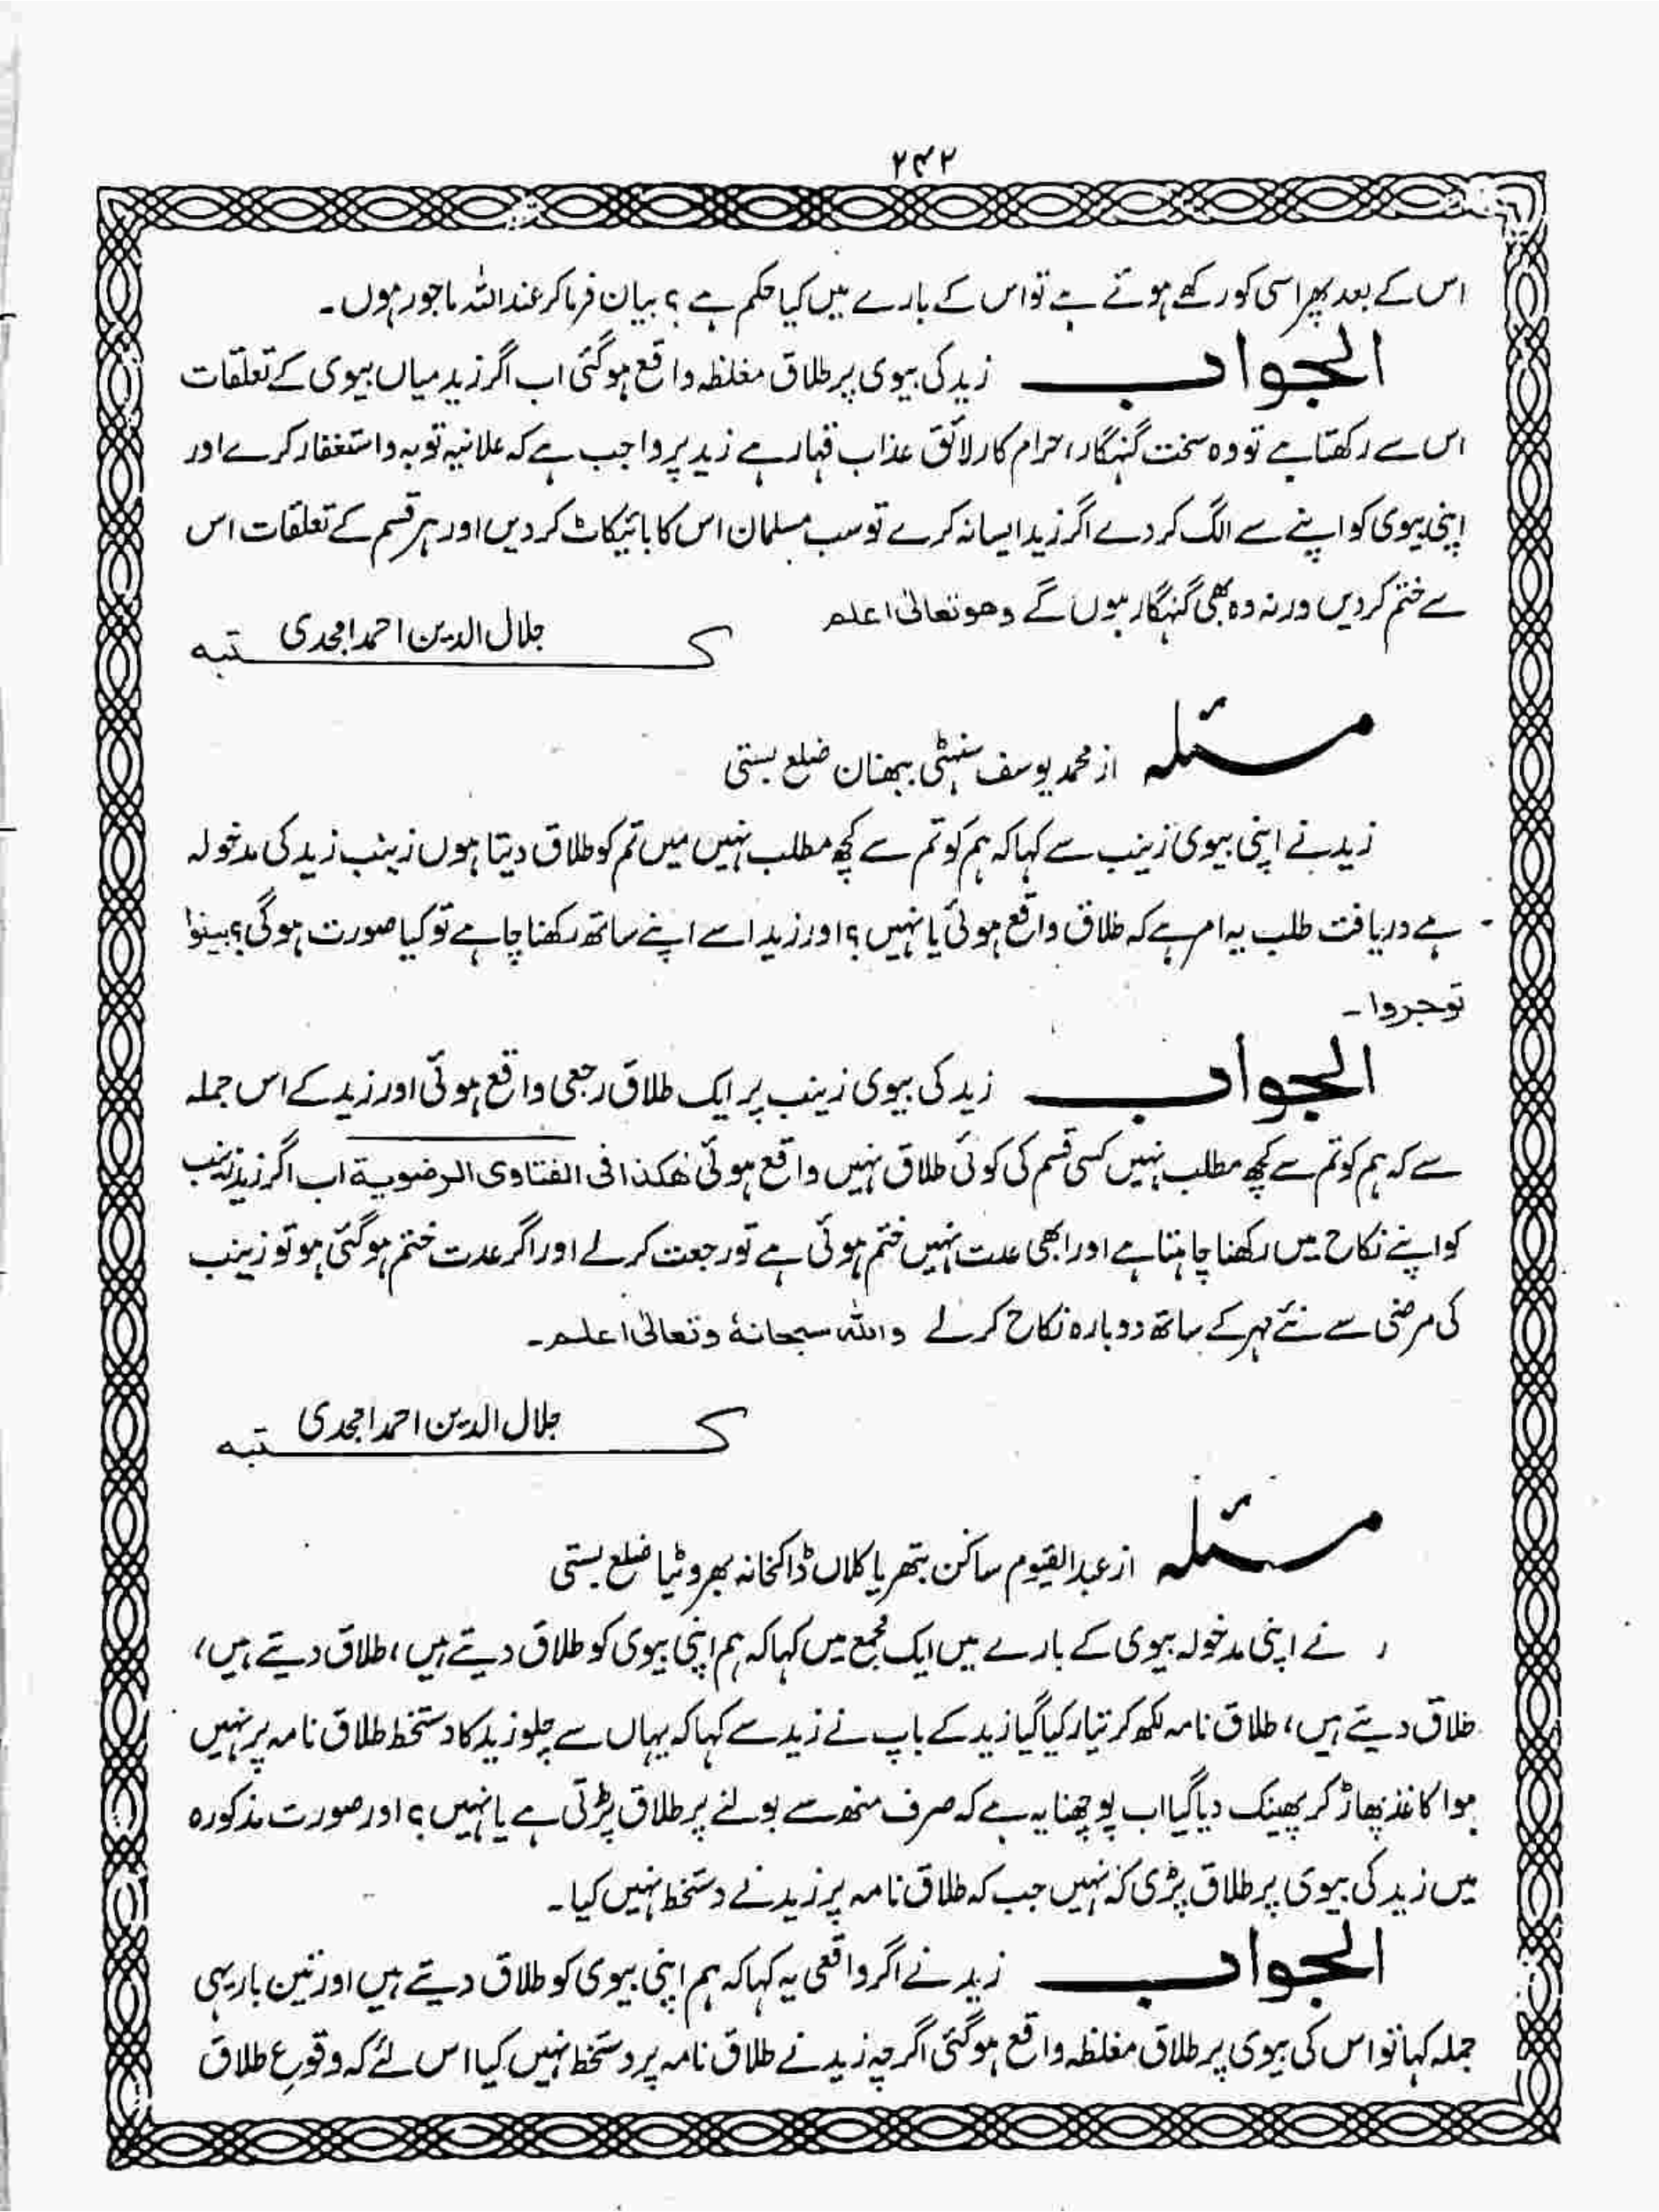 ۲۴۲
اس کے بعد پھر اسی کو رکھے ہوئے ہے تو اس کے بارے میں کیا حکم ہے ؟ بیان فرما کر عند اللہ ماجور ہوں۔
الجواب زید کی بیوی پر طلاق مغلظہ واقع ہوگئی اب اگر زید میاں بیوی کے تعلقات
اس سے رکھتا ہے تو وہ سخت گنہگار، حرام کار لائق عذاب قہار ہے زید پر واجب ہے کہ علانیہ توبہ و استغفار کرے اور
اپنی بیوی کو اپنے سے الگ کر دے اگر زید ایسا نہ کرے تو سب مسلمان اس کا بائیکاٹ کر دیں اور ہر قسم کے تعلقات اس
سے ختم کر دیں ورنہ وہ بھی گنہگار ہوں گے وھو تعالیٰ اعلم
کتبہ جلال الدین احمد امجدی
مسئلہ از محمد یوسف بھنان ضلع بستی
زید نے اپنی بیوی زینب سے کہا کہ ہم کو تم سے کچھ مطلب نہیں میں تم کو طلاق دیتا ہوں زینب زید کی مدخولہ
ہے دریافت طلب یہ امر ہے کہ طلاق واقع ہوئی یا نہیں ؟ اور زید اسے اپنے ساتھ رکھنا چاہے تو کیا صورت ہوگی ؟ بینوا
توجروا۔
الجواب زید کی بیوی زینب پر ایک طلاق رجعی واقع ہوئی اور زید کے اس جملہ
سے کہ ہم کو تم سے کچھ مطلب نہیں کسی قسم کی کوئی طلاق نہیں واقع ہوئی ھٰکذا فی الفتاوی الرضویۃ اب اگر زید زینب
کو اپنے نکاح میں رکھنا چاہتا ہے اور ابھی عدت نہیں ختم ہوئی ہے تو رجعت کر لے اور اگر عدت ختم ہوگئی ہو تو زینب
کی مرضی سے نئے مہر کے ساتھ دوبارہ نکاح کر لے واللہ سبحانہٗ وتعالیٰ اعلم۔
کتبہ جلال الدین احمد امجدی
مسئلہ از عبد القیوم ساکن پتھریا کلاں ڈاکخانہ بھروٹیا ضلع بستی
نے اپنی مدخولہ بیوی کے بارے میں ایک مجمع میں کہا کہ ہم اپنی بیوی کو طلاق دیتے ہیں، طلاق دیتے ہیں،
طلاق دیتے ہیں، طلاق نامہ لکھ کر تیار کیا گیا زید کے باپ نے زید سے کہا کہ یہاں سے چلو زید کا دستخط طلاق نامہ پر نہیں
ہوا کاغذ پھاڑ کر پھینک دیا گیا اب پوچھنا یہ ہے کہ صرف منھ سے بولنے پر طلاق پڑتی ہے یا نہیں ؟ اور صورت مذکورہ
میں زید کی بیوی پر طلاق پڑی کہ نہیں جب کہ طلاق نامہ پر زید نے دستخط نہیں کیا۔
الجواب زید نے اگر واقعی یہ کہا کہ ہم اپنی بیوی کو طلاق دیتے ہیں اور تین بار یہی
جملہ کہا تو اس کی بیوی پر طلاق مغلظہ واقع ہوگئی اگرچہ زید نے طلاق نامہ پر دستخط نہیں کیا اس لئے کہ وقوع طلاق